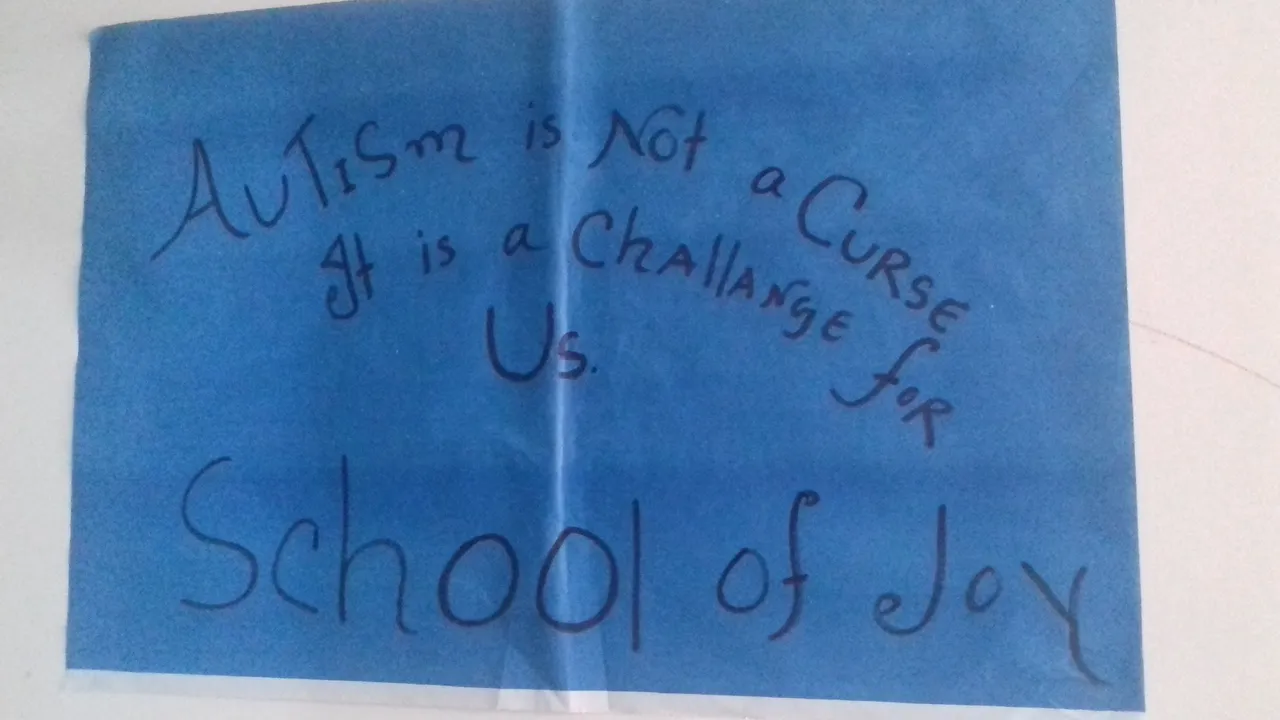 AuTISm is Not a CURSE
It is a ChAllANGE foR
Us.
School of Joy